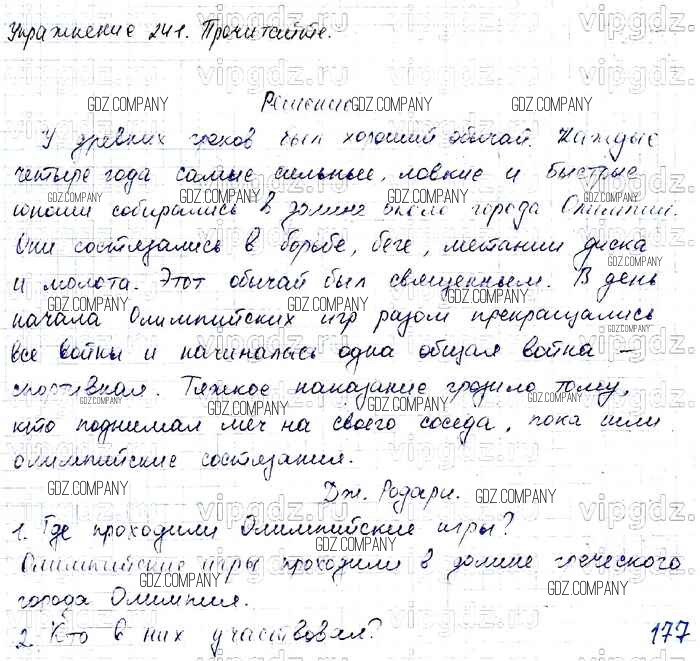 Упражнение 241. Прочитайте.
Решение
У древних греков был хороший обычай. Каждые
четыре года самые сильные, ловкие и быстрые
юноши собирались в долине около города Олимпии.
Они состязались в борьбе, беге, метании диска
и молота. Этот обычай был священным. В день
начала Олимпийских игр разом прекращались
все войны и начиналась одна общая война –
спортивная. Тяжкое наказание грозило тому,
кто поднимал меч на своего соседа, пока шли
олимпийские состязания.
Дж. Родари.
1. Где проходили Олимпийские игры?
Олимпийские игры проходили в долине греческого
города Олимпия.
2. Кто в них участвовал?
177